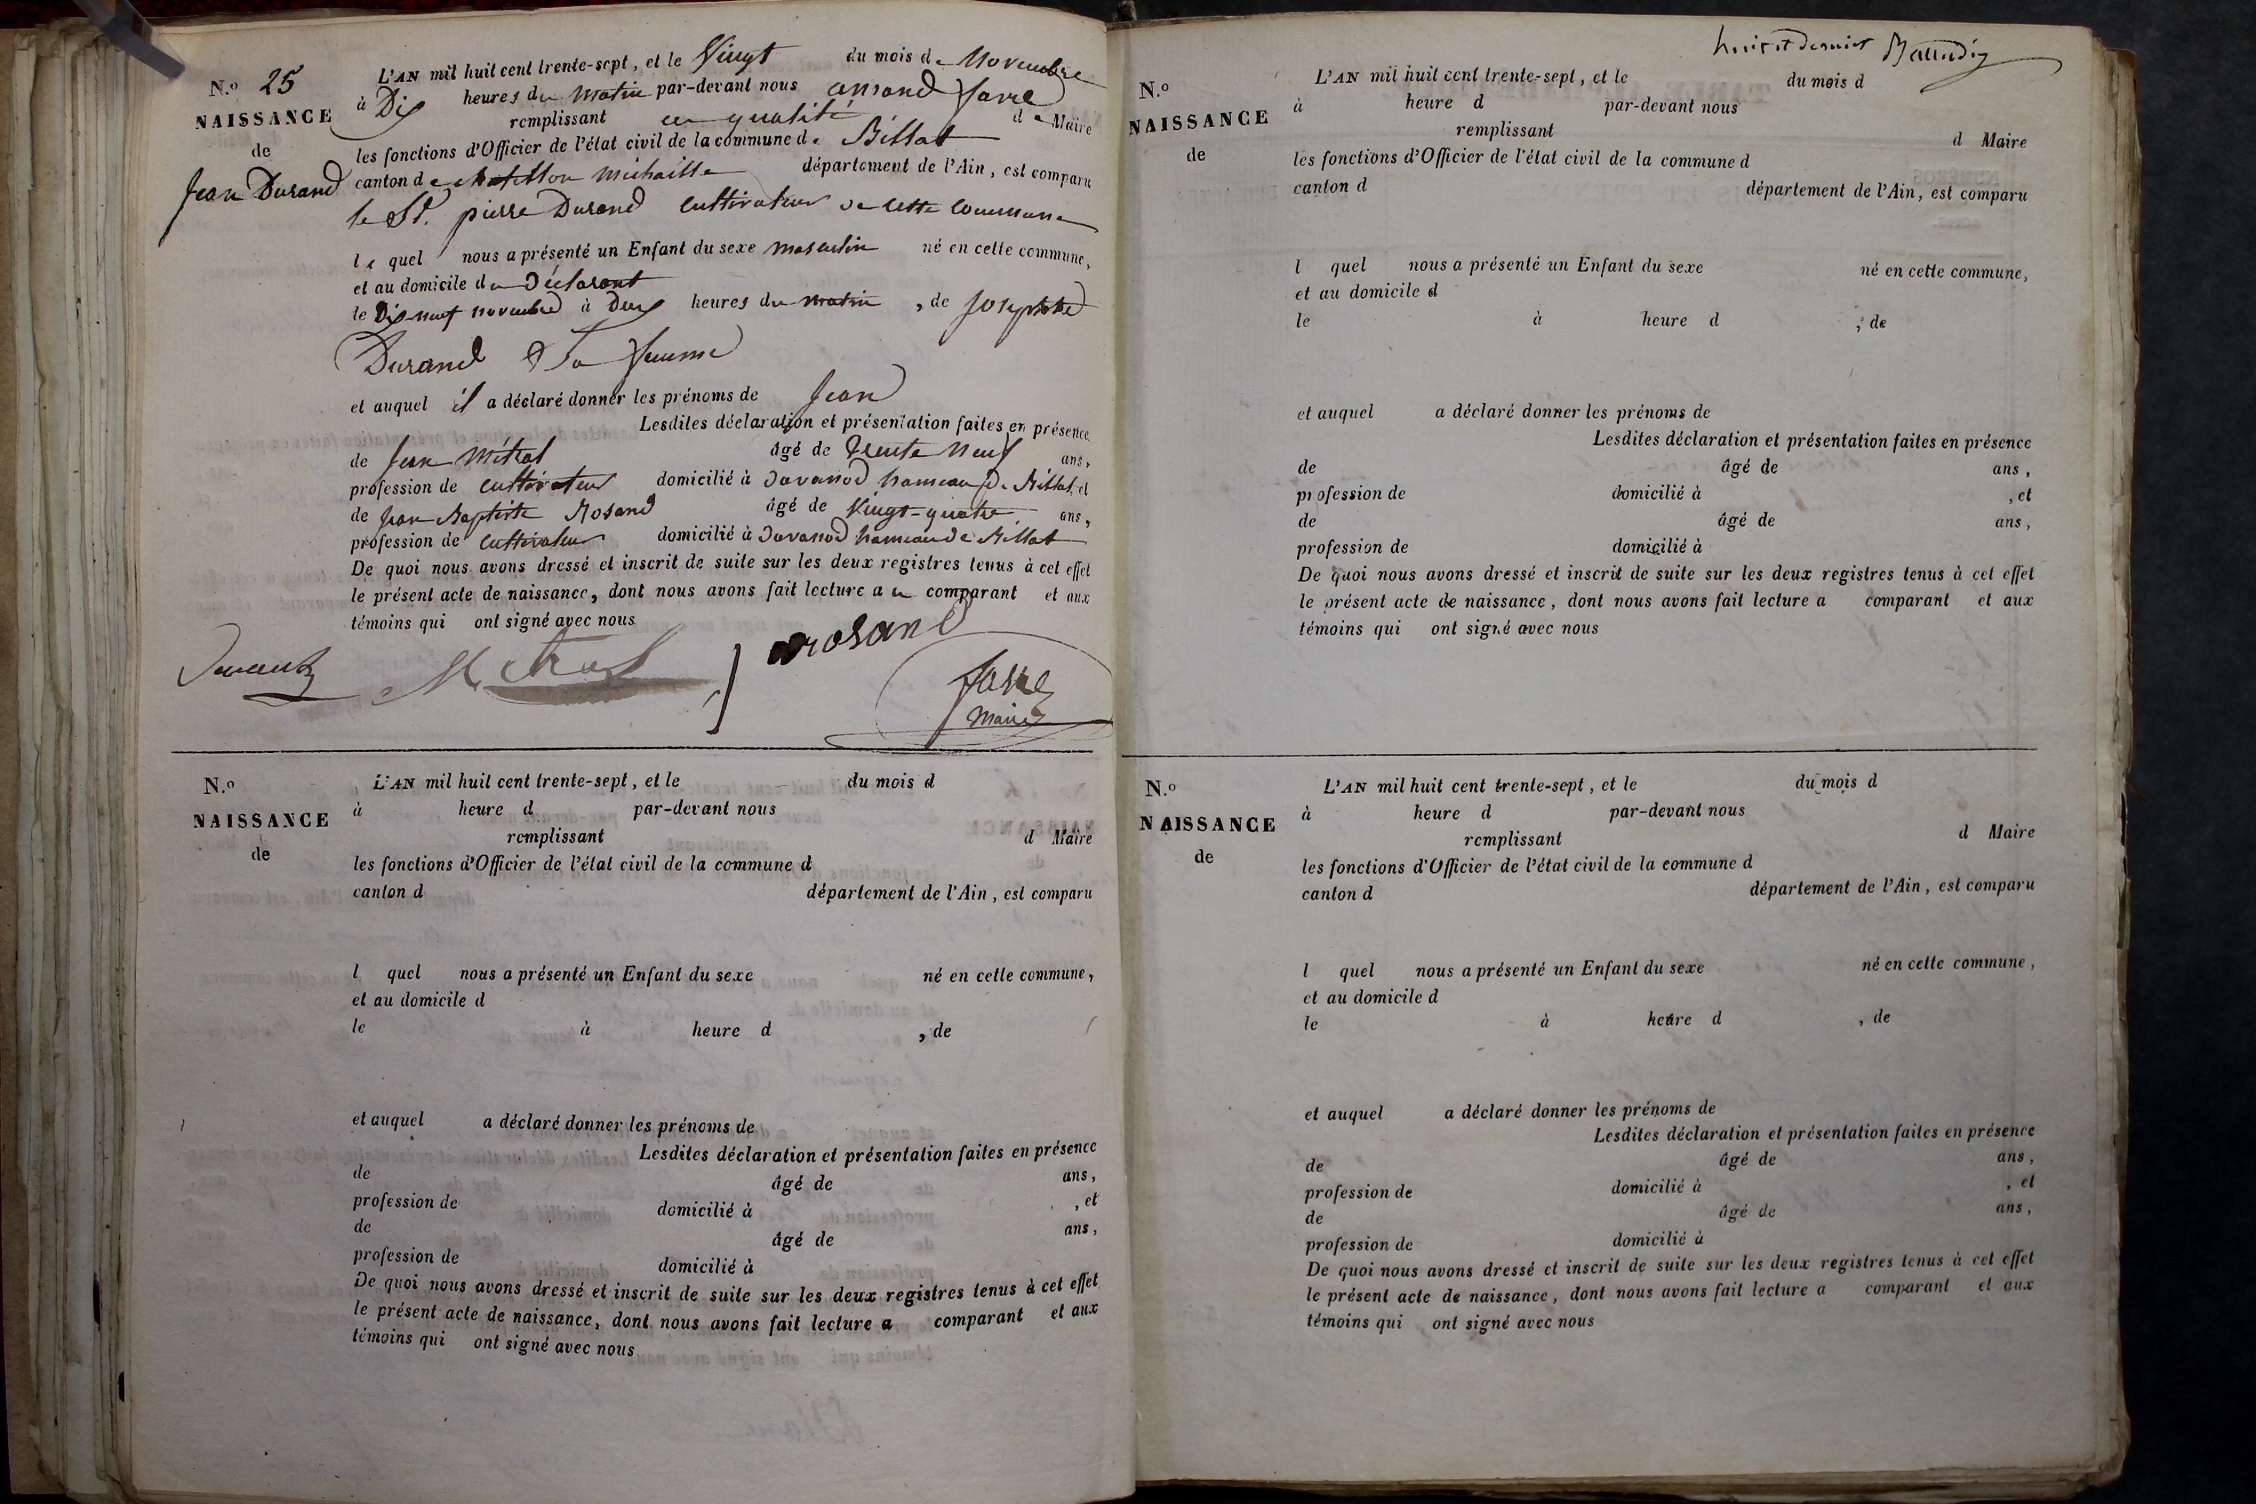 N.o 25
NAISSANCE
de
Jean Durand
L'AN mil huit cent trente-sept, et le Vingt du mois de Novembre
à Dix heures du matin par-devant nous amand favre
remplissant en qualité de Maire
les fonctions d'Officier de l'état civil de la commune de Billiat
canton de chatillon michaille département de l'Ain, est comparu
le Sr. pierre Durand cultivateur de cette commune
le quel nous a présenté un Enfant du sexe masculin né en cette commune,
et au domicile du Déclarant
le Dix neuf novembre à Deux heures du matin, de josephte
Durand Sa femme
et auquel il a déclaré donner les prénoms de Jean
Lesdites déclaration et présentation faites en présence
de Jean Métral âgé de trente neuf ans,
profession de cultivateur domicilié à davanod hameau de Billiat, et
de Jean Baptiste Rosand âgé de Vingt-quatre ans,
profession de cultivateur domicilié à davanod hameau de Billiat
De quoi nous avons dressé et inscrit de suite sur les deux registres tenus à cet effet
le présent acte de naissance, dont nous avons fait lecture au comparant et aux
témoins qui ont signé avec nous
Métral
rosand
favre
maire
N.o
NAISSANCE
de
L'AN mil huit cent trente-sept, et le du mois d
à heure d par-devant nous
remplissant d Maire
les fonctions d'Officier de l'état civil de la commune d
canton d département de l'Ain, est comparu
l quel nous a présenté un Enfant du sexe né en cette commune,
et au domicile d
le à heure d , de
et auquel a déclaré donner les prénoms de
Lesdites déclaration et présentation faites en présence
de âgé de ans,
profession de domicilié à , et
de âgé de ans,
profession de domicilié à
De quoi nous avons dressé et inscrit de suite sur les deux registres tenus à cet effet
le présent acte de naissance, dont nous avons fait lecture a comparant et aux
témoins qui ont signé avec nous
huit et dernier
N.o
NAISSANCE
de
L'AN mil huit cent trente-sept, et le du mois d
à heure d par-devant nous
remplissant d Maire
les fonctions d'Officier de l'état civil de la commune d
canton d département de l'Ain, est comparu
l quel nous a présenté un Enfant du sexe né en cette commune,
et au domicile d
le à heure d , de
et auquel a déclaré donner les prénoms de
Lesdites déclaration et présentation faites en présence
de âgé de ans,
profession de domicilié à , et
de âgé de ans,
profession de domicilié à
De quoi nous avons dressé et inscrit de suite sur les deux registres tenus à cet effet
le présent acte de naissance, dont nous avons fait lecture a comparant et aux
témoins qui ont signé avec nous
N.o
NAISSANCE
de
L'AN mil huit cent trente-sept, et le du mois d
à heure d par-devant nous
remplissant d Maire
les fonctions d'Officier de l'état civil de la commune d
canton d département de l'Ain, est comparu
l quel nous a présenté un Enfant du sexe né en cette commune,
et au domicile d
le à heure d , de
et auquel a déclaré donner les prénoms de
Lesdites déclaration et présentation faites en présence
de âgé de ans,
profession de domicilié à , et
de âgé de ans,
profession de domicilié à
De quoi nous avons dressé et inscrit de suite sur les deux registres tenus à cet effet
le présent acte de naissance, dont nous avons fait lecture a comparant et aux
témoins qui ont signé avec nous